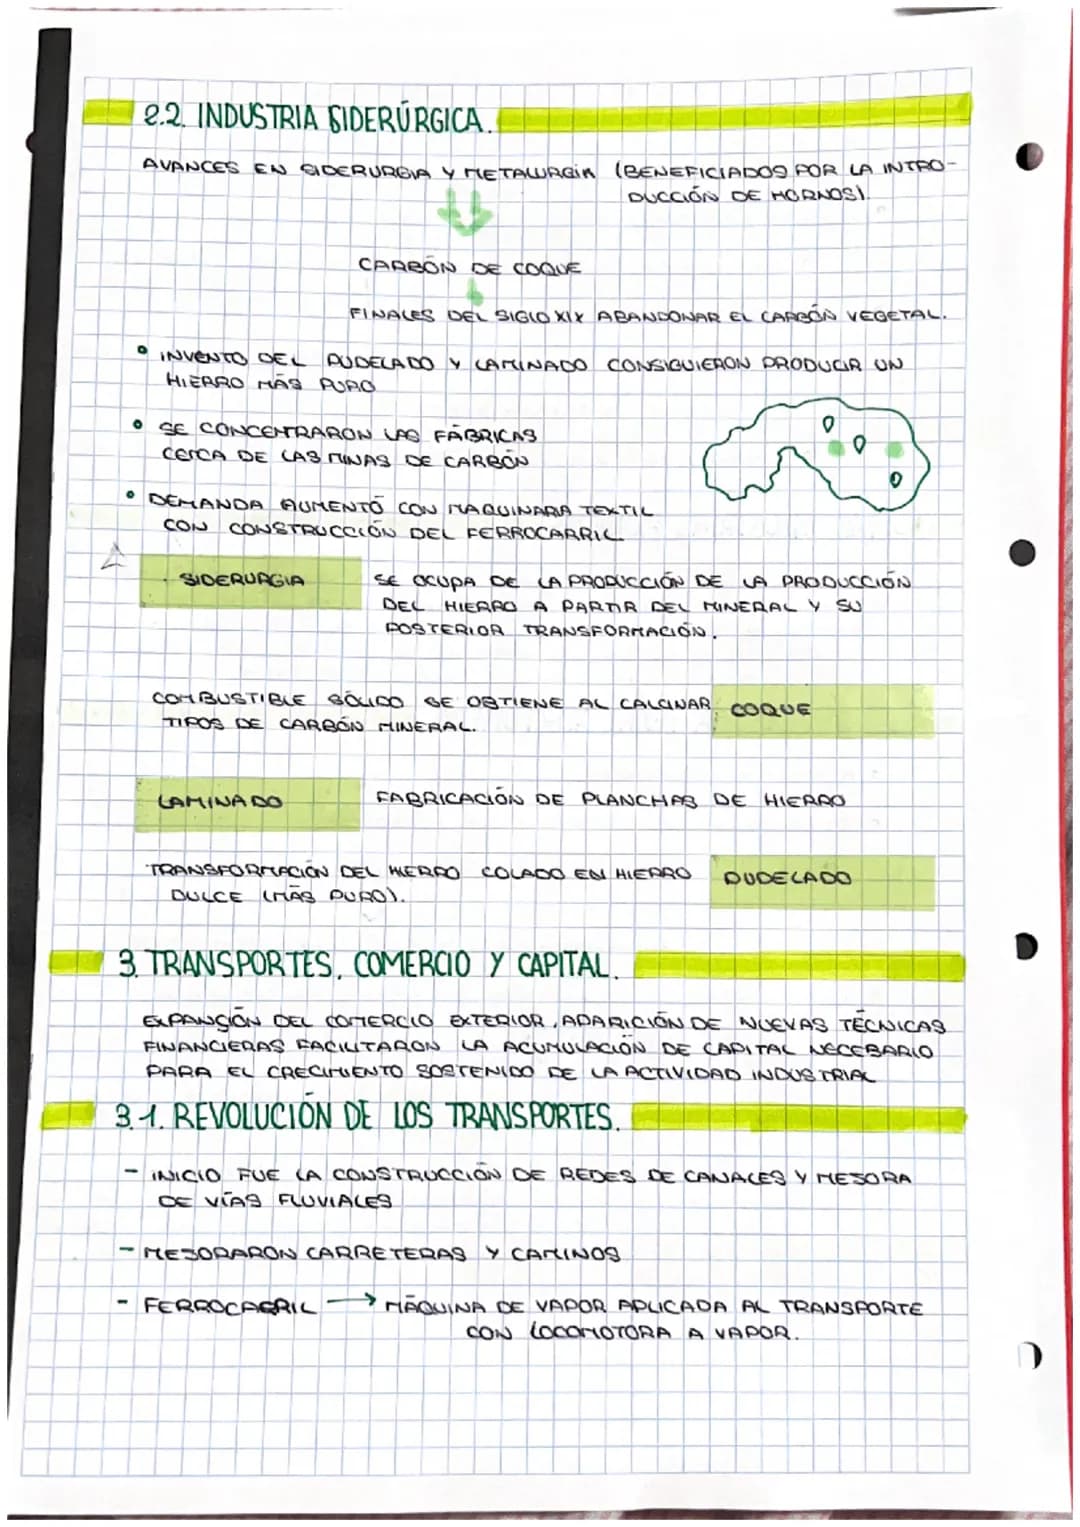 2.2. INDUSTRIA SIDERÚRGICA.
AVANCES EN SIDERURGIA Y METALURGIA (BENEFICIADOS POR LA INTRO-
DUCCIÓN DE HORNOS).
CARBÓN DE COQUE
FINALES DEL SIGLO XIX ABANDONAR EL CARBÓN VEGETAL.
• INVENTO DEL PUDELADO Y LAMINADO CONSIGUIERON PRODUCIR UN
HIERRO MÁS PURO
• SE CONCENTRARON LAS FÁBRICAS
CERCA DE LAS MINAS DE CARBÓN
• DEMANDA AUMENTÓ CON MAQUINARIA TEXTIL
CON CONSTRUCCIÓN DEL FERROCARRIL
SIDERURGIA SE OCUPA DE LA PRODUCCIÓN DE LA PRODUCCIÓN
DEL HIERRO A PARTIR DEL MINERAL Y SU
POSTERIOR TRANSFORMACIÓN.
COMBUSTIBLE SÓLIDO SE OBTIENE AL CALCINAR COQUE
TIPOS DE CARBÓN MINERAL.
LAMINADO FABRICACIÓN DE PLANCHAS DE HIERRO
TRANSFORMACIÓN DEL HIERRO COLADO EN HIERRO PUDELADO
DULCE (MÁS PURO).
3. TRANSPORTES, COMERCIO Y CAPITAL.
EXPANSIÓN DEL COMERCIO EXTERIOR, APARICIÓN DE NUEVAS TÉCNICAS
FINANCIERAS FACILITARON LA ACUMULACIÓN DE CAPITAL NECESARIO
PARA EL CRECIMIENTO SOSTENIDO DE LA ACTIVIDAD INDUSTRIAL
3.1. REVOLUCIÓN DE LOS TRANSPORTES.
- INICIO FUE LA CONSTRUCCIÓN DE REDES DE CANALES Y MEJORA
DE VÍAS FLUVIALES
- MEJORARON CARRETERAS Y CAMINOS
- FERROCARRIL → MÁQUINA DE VAPOR APLICADA AL TRANSPORTE
CON LOCOMOTORA A VAPOR.